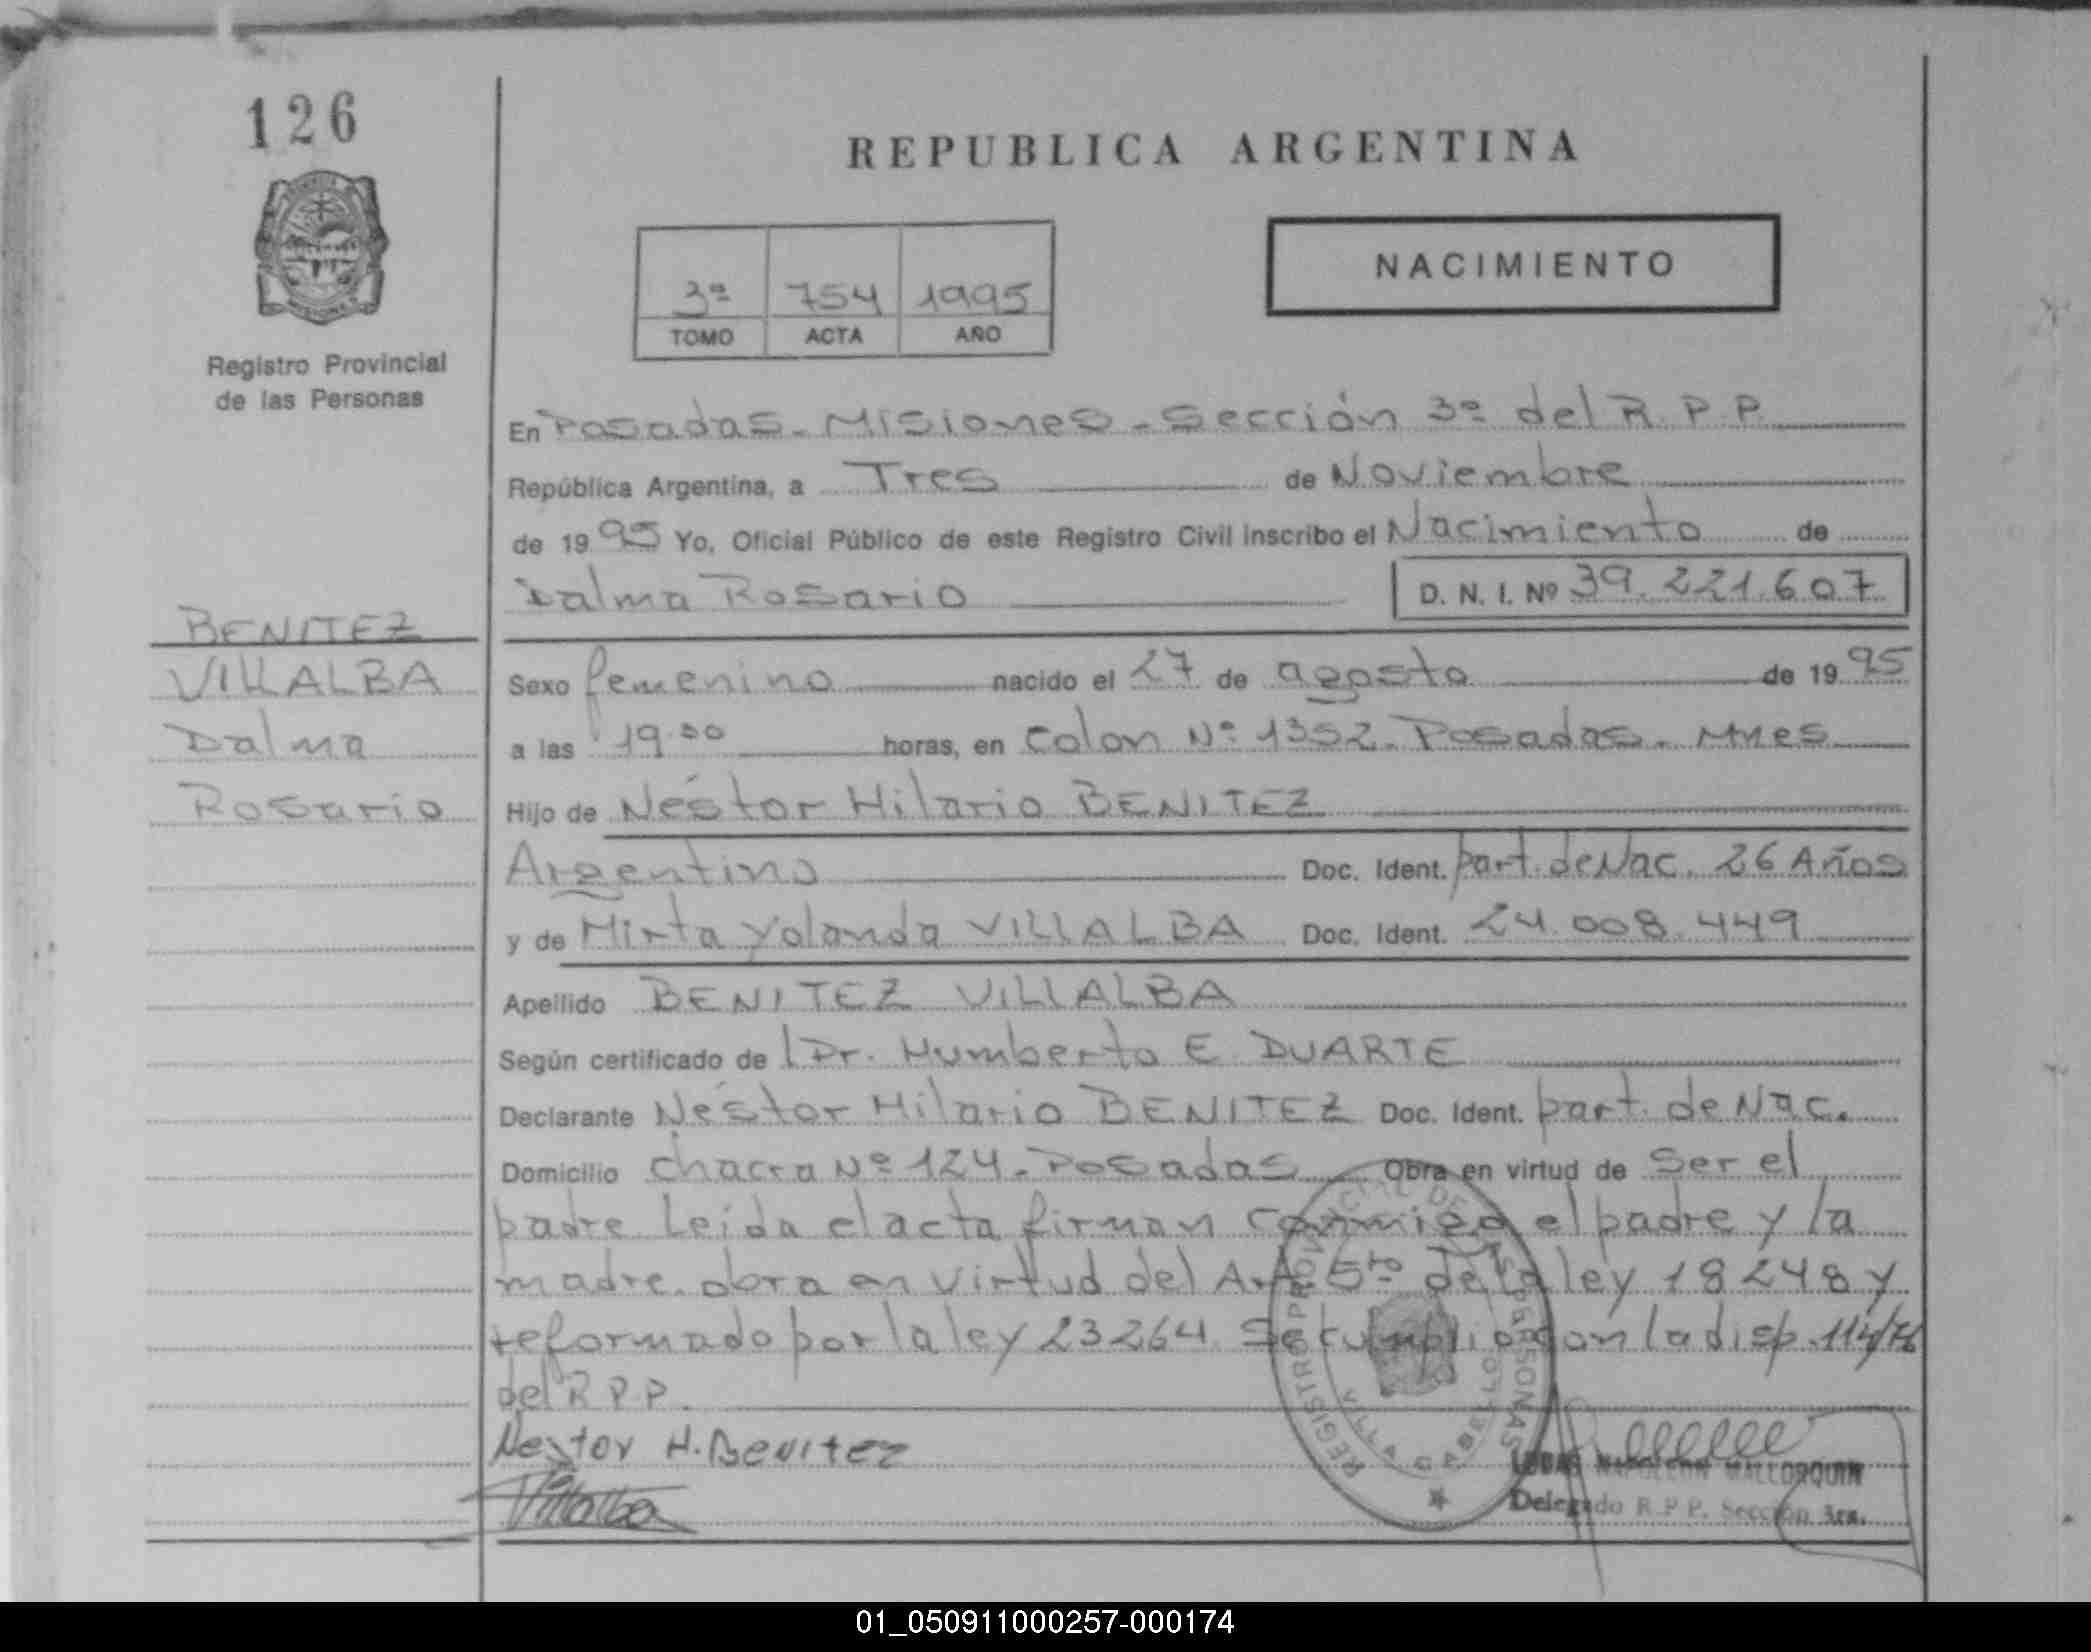 126
REPUBLICA ARGENTINA
NACIMIENTO
3º 754 1995
TOMO ACTA AÑO
Registro Provincial
de las Personas
En Posadas - Misiones - Sección 3º del R.P.P.
República Argentina, a Tres de Noviembre
de 1995 Yo, Oficial Público de este Registro Civil inscribo el Nacimiento de
Dalma Rosario D. N. I. Nº 39.221.607
BENITEZ
VILLALBA
Dalma
Rosario
Sexo femenino nacido el 27 de agosto de 1995
a las 19:30 horas, en Colon Nº 1352. Posadas. Mnes
Hijo de Néstor Hilario BENITEZ
Argentino Doc. Ident. part. de Nac. 26 Años
y de Mirta Yolanda VILLALBA Doc. Ident. 24.008.449
Apellido BENITEZ VILLALBA
Según certificado de l Dr. Humberto E DUARTE
Declarante Néstor Hilario BENITEZ Doc. Ident. part. de Nac.
Domicilio chacra Nº 124. Posadas Obra en virtud de Ser el
padre. Leida el acta firman conmigo el padre y la
madre. obra en virtud del Art. 5to de la ley 18248 y
reformado por la ley 23264. Se cumplio con la disp. 114/76
del R.P.P.
Nestor H. Benitez
Villalba
REGISTRO PROVINCIAL DE LAS PERSONAS
VILLA CABELLO
LUCAS NAPOLEON MALLORQUIN
Delegado R.P.P. Sección 3ra.
01_050911000257-000174